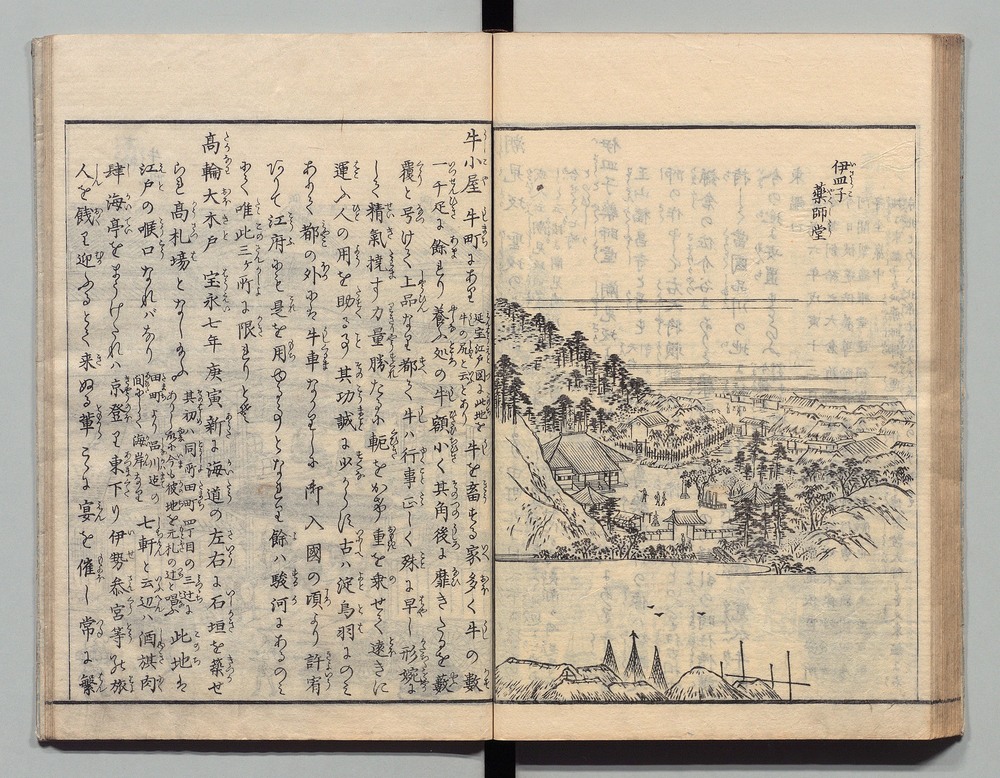 伊皿子
薬師堂
牛小屋 牛町にあり 延宝江戸図に此地を牛の尻と云とあり 牛を畜する家多く牛の數
一千疋に餘れり 養ふ処の牛 額小く其角後に靡きたるを藪
覆と号けて上品なり 都て牛ハ行事正しく 殊に早し 形婉に
しく精氣撓す 力量勝たるに軛をかけ重を乗せて遠きに
運ふ 人の用を助るる其功誠に少からす 古ハ淀鳥羽にのミ
ありて都の外にハ牛車なかりしに 御入國の頃より許宥
ありて江府にても是を用ゆる事となれり 其餘ハ駿河にあるのミ
にて 唯此三ヶ所に限れりとそ
高輪大木戸 宝永七年庚寅新に海道の左右に石垣を築せ
られ高札場となし給ふ 其初ハ同所田町四丁目の三辻にありし故に今も彼地を元札の辻と唱ふ 此地ハ
江戸の喉口なれバなり 田町より品川迄の間にして海岸なり 七軒と云辺ハ酒旗肉
肆海亭をまうけたれハ 京登り東下り伊勢参宮等の旅
人を餞り迎ふるとて来ぬる輩 こゝに宴を催し 常に繁